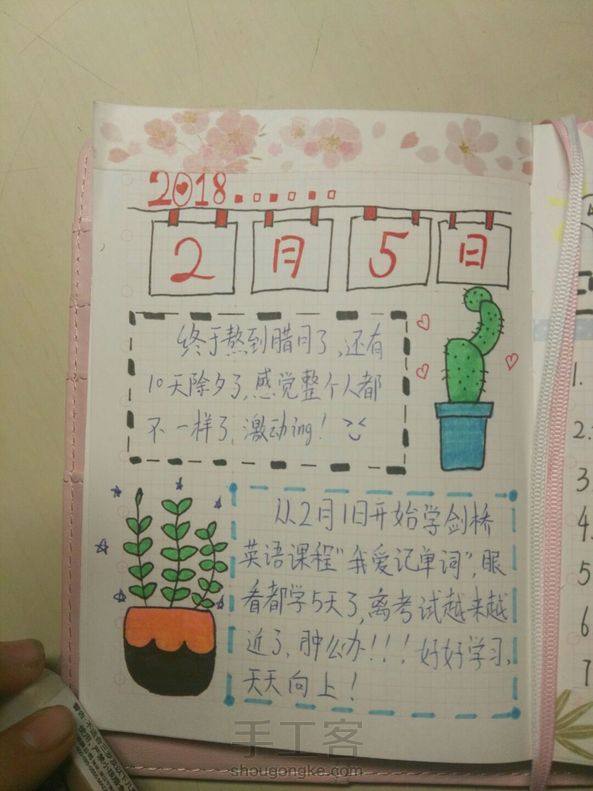 2018
2月5日
终于熬到腊月了,还有
10天除夕了,感觉整个人都
不一样了,激动ing!
从2月1日开始学剑桥
英语课程"我爱记单词",眼
看都学5天了,离考试越来越
近了,肿么办!!!好好学习,
天天向上!
1.
2.
3
4.
5
6
7
手工客
shougongke.com